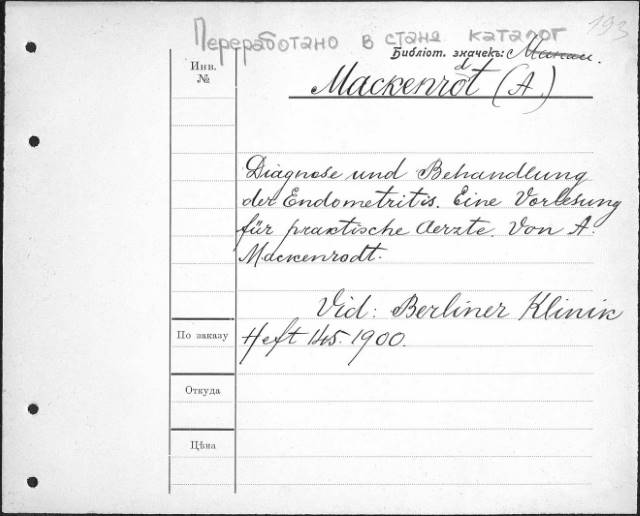 193
Переработано в станя каталог
Библіот. значекъ:
Инв.
№
Mackenrodt (A.)
Diagnose und Behandlung
der Endometritis. Eine Vorlesung
für praktische Aerzte. Von A.
Mackenrodt.
Vid: Berliner Klinik
По заказу
Heft 145. 1900.
Откуда
Цѣна